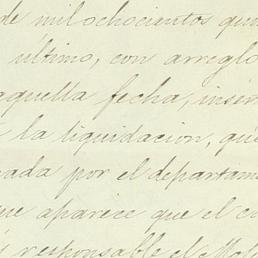 de milochocientos qui
ultimo, con arreglo
aquella fecha, inser
la liquidacion, que
ada por el departam
que aparece que el c
responsable el